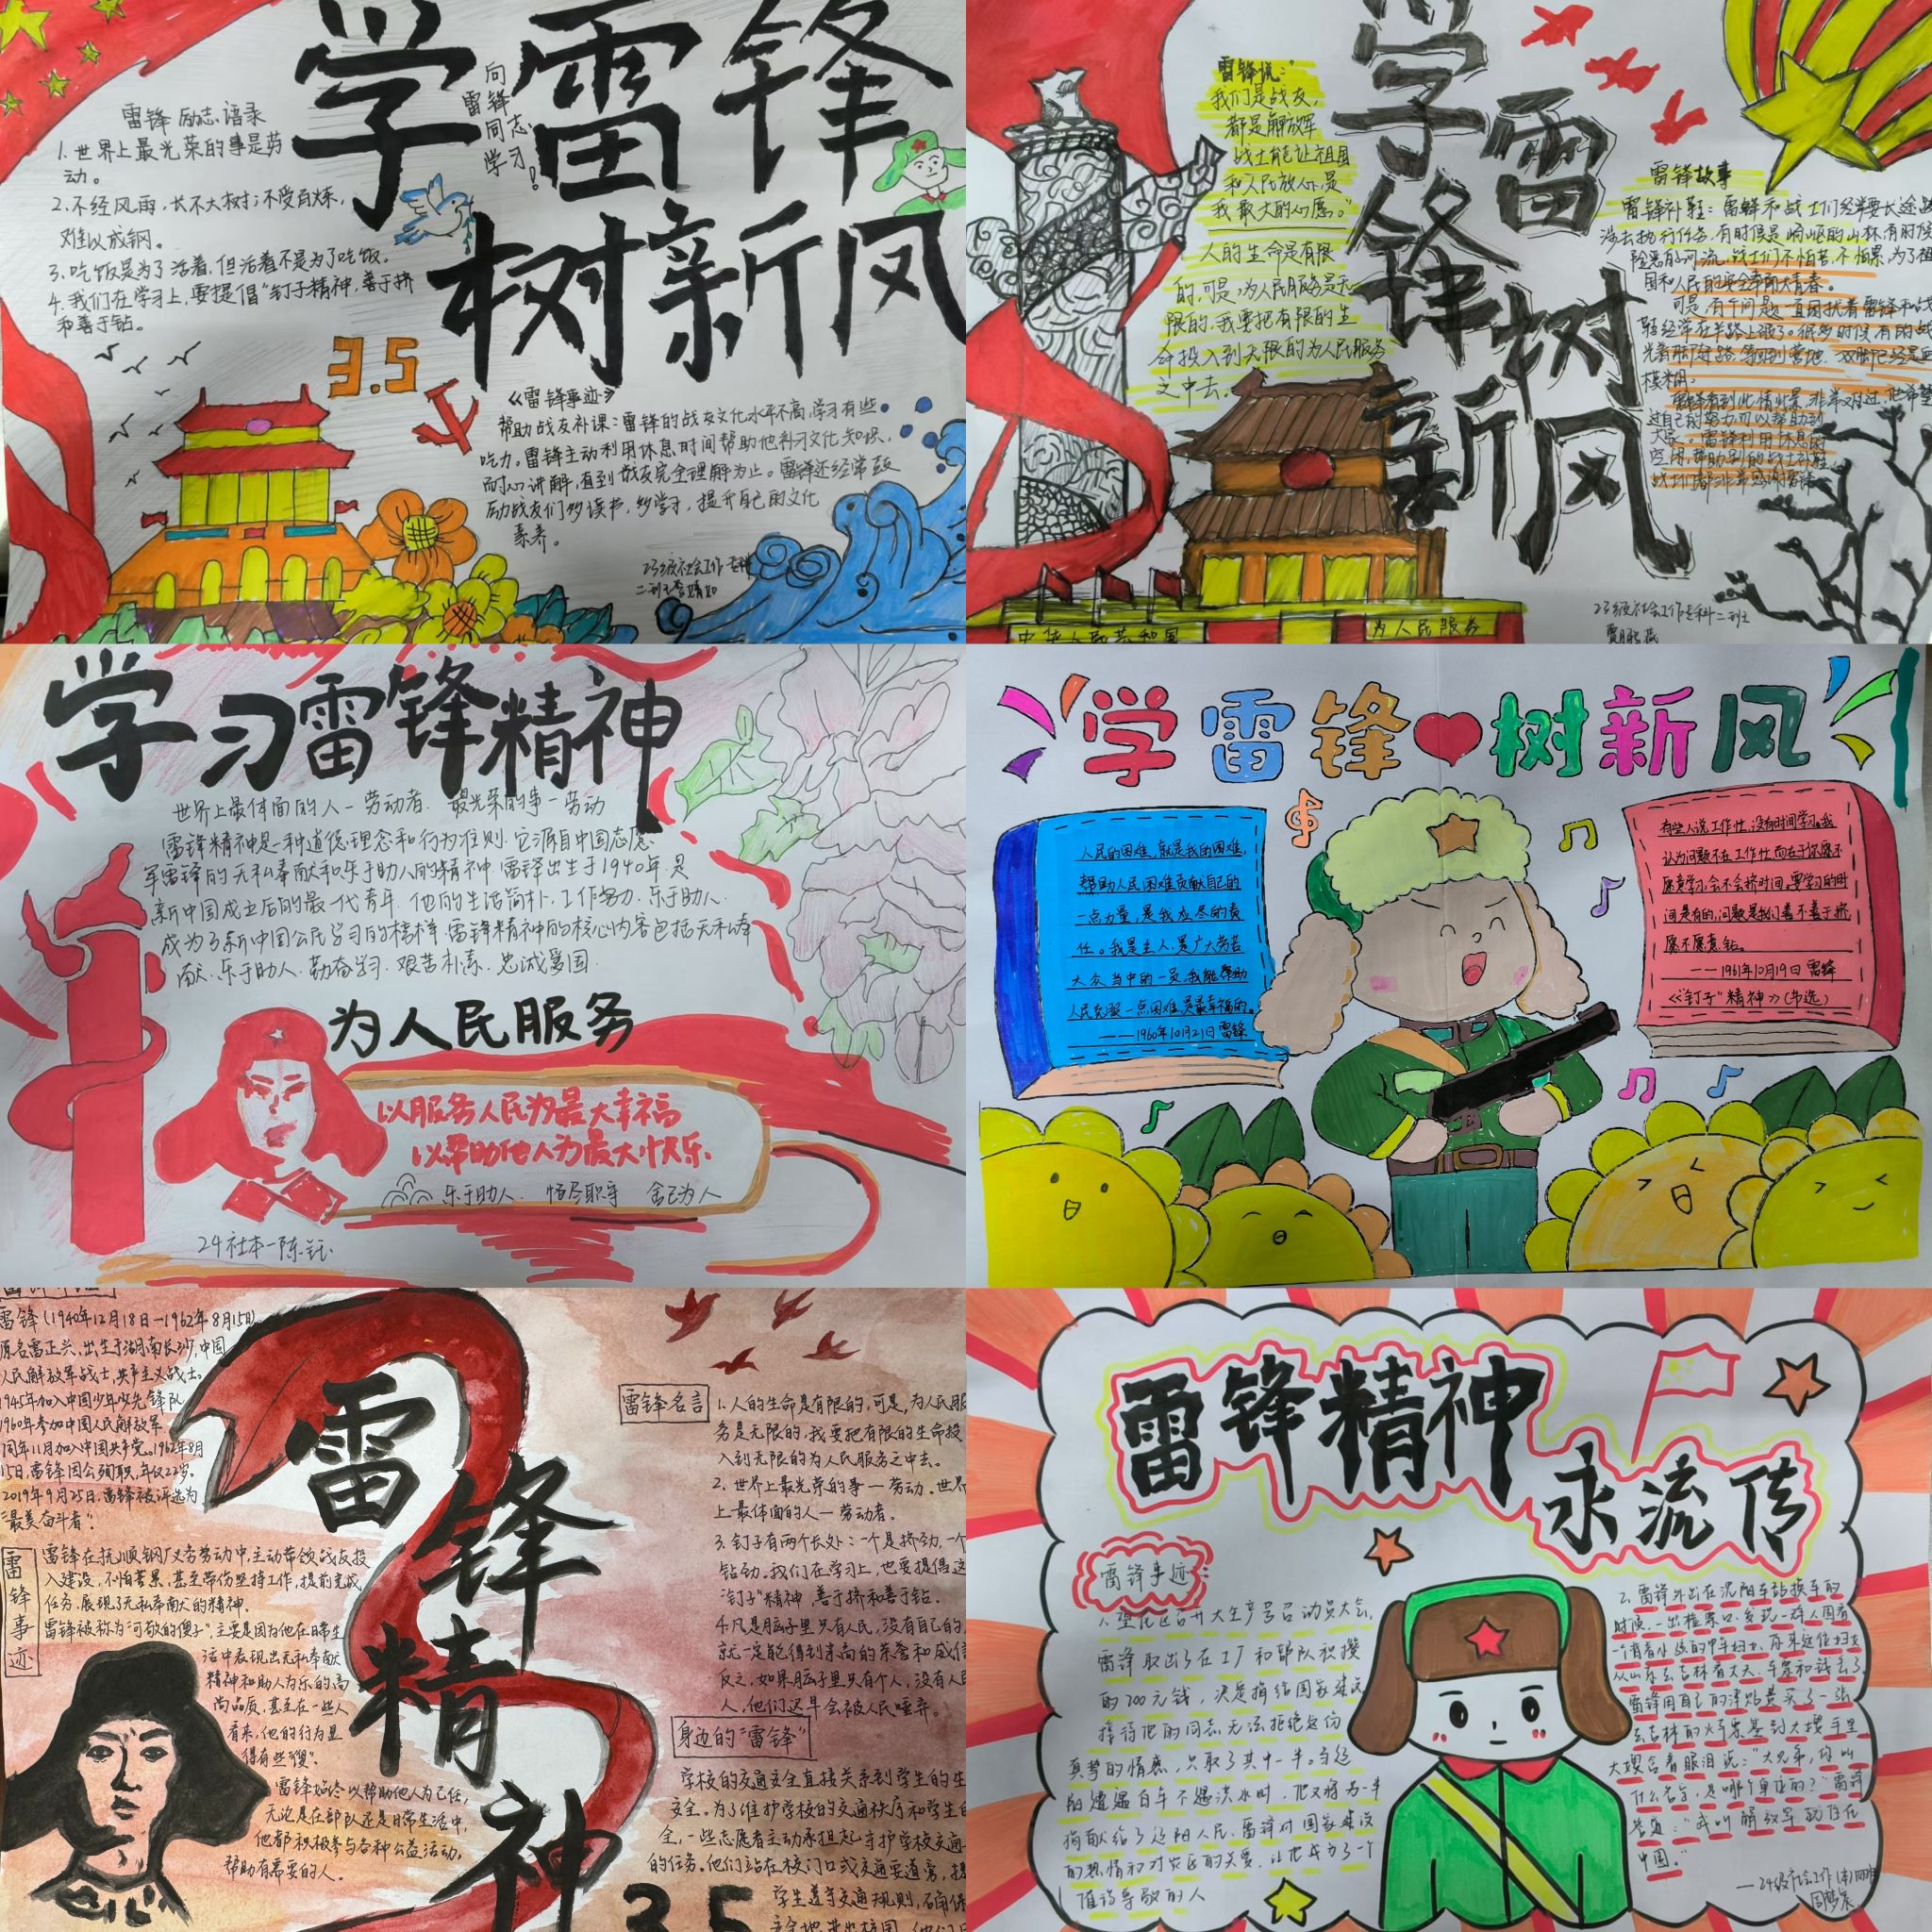 学雷锋
树新风
向
雷锋
同志
学习!
雷锋励志语录
1.世界上最光荣的事是劳
动。
2.不经风雨,长不大树;不受百炼,
难以成钢。
3.吃饭是为了活着,但活着不是为了吃饭。
4.我们在学习上,要提倡“钉子精神,善于挤
和善于钻。
3.5
《雷锋事迹》
帮助战友补课:雷锋的战友文化水平不高,学习有些
吃力。雷锋主动利用休息时间帮助他补习文化知识,
耐心讲解,直到战友完全理解为止。雷锋还经常鼓
励战友们多读书,多学习,提升自己的文化
素养。
23级社会工作专科
二班
学雷
锋树
新风
雷锋说:“
我们是战友,
都是解放军
战士能让祖国
和人民放心,是
我最大的心愿。”
人的生命是有限
的,可是,为人民服务是无
限的,我要把有限的生
命投入到无限的为人民服务
之中去。
雷锋故事
雷锋补鞋:雷锋和战士们经常要长途跋
涉去执行任务,有时候是崎岖的山林,有时候
险恶的河流,战士们不怕苦,不怕累,为了祖
国和人民的安全奉献大青春。
可是,有个问题一直困扰着雷锋和战
鞋经常在半路上破了。很多时候有的战
光着脚赶路,等回到营地,双脚已经是血
模糊。
雷锋看到此情此景,非常难过,他希望
过自己的努力可以帮助到
大家。雷锋利用休息的
空闲,帮助别的战士补鞋
中华人民共和国
为人民服务
23级社会工作专科二班
学习雷锋精神
世界上最体面的人一劳动者. 最光荣的事一劳动
雷锋精神是一种道德理念和行为准则.它源自中国志愿
军雷锋的无私奉献和乐于助人的精神.雷锋出生于1940年.是
新中国成立后的最一代青年.他的生活简朴.工作努力.乐于助人.
成为了新中国公民学习的榜样.雷锋精神的核心内容包括无私奉
献.乐于助人.勤奋学习.艰苦朴素.忠诚爱国.
为人民服务
以服务人民为最大幸福
以帮助他人为最大快乐.
乐于助人. 恪尽职守 舍己为人
24社本一陈
学雷锋树新风
人民的困难,就是我的困难,
帮助人民困难贡献自己的
一点力量,是我应尽的责
任。我是主人,是广大劳苦
大众当中的一员,我能帮助
人民克服一点困难,是最幸福的。
——1960年10月21日雷锋
有些人说工作忙,没有时间学习。我
认为问题不在工作忙,而在于你愿不
愿意学习,会不会挤时间。要学习的时
间是有的,问题是我们善不善于挤,
愿不愿意钻。
——1961年10月19日雷锋
《“钉子”精神》(节选)
雷锋精神
雷锋(1940年12月18日一1962年8月15日)
原名雷正兴,出生于湖南长沙,中国
人民解放军战士,共产主义战士。
1945年加入中国少年少先锋队
1960年参加中国人民解放军.
同年11月加入中国共产党。1962年8月
15日,雷锋因公殉职,年仅22岁。
2019年9月25日,雷锋被评选为
“最美奋斗者”.
雷锋事迹
雷锋在抚顺钢厂义务劳动中,主动带领战友投
入建设,不怕苦累,甚至带伤坚持工作,提前完成
任务,展现了无私奉献的精神.
雷锋被称为“可敬的傻子”,主要是因为他在日常生
活中表现出无私奉献
精神和助人为乐的高
尚品质,甚至在一些人
看来,他的行为显
得有些“傻”.
雷锋始终以帮助他人为己任,
无论是在部队还是日常生活中,
他都积极参与各种公益活动,
帮助有需要的人.
雷锋名言
1.人的生命是有限的,可是,为人民服
务是无限的,我要把有限的生命投
入到无限的为人民服务之中去。
2.世界上最光荣的事一劳动.世界
上最体面的人一劳动者.
3.钉子有两个长处:一个是挤劲,一个
钻劲.我们在学习上,也要提倡这
“钉子”精神,善于挤和善于钻.
4.凡是脑子里只有人民,没有自己的,
就一定能得到崇高的荣誉和威信
反之,如果脑子里只有个人,没有人民
人,他们迟早会被人民唾弃.
身边的“雷锋”
学校的交通安全直接关系到学生的生
安全.为了维护学校的交通秩序和学生自
全,一些志愿者主动承担起守护学校交通
的任务.他们站在校门口或交通要道旁,指
学生遵守交通规则,确保
安全地进出校园.他们
3.5
雷锋精神
永流传
雷锋事迹
1.望花区召开大生产号召动员大会,
雷锋取出了在工厂和部队积攒
的200元钱,决定捐给国家建设
接待他的同志无法拒绝这份
真挚的情感,只取了其中一半。当经
的遭遇百年不遇洪水时,他又将另一半
捐献给了辽阳人民.雷锋对国家建设
的热情和对灾区的关爱,让他成为了一个
值得尊敬的人
2.雷锋外出在沈阳车站换车的
时候,一出检票口,发现一群人围着
一个背着小孩的中年妇女,原来这位妇女
从山东去吉林看丈夫,车票和钱丢了
雷锋用自己的津贴费买了一张
去吉林的火车票塞到大嫂手里
大嫂含着眼泪说:“大兄弟,你叫
什么名字,是哪个单位的?”雷锋
答道:“我叫解放军,就住在
中国。”